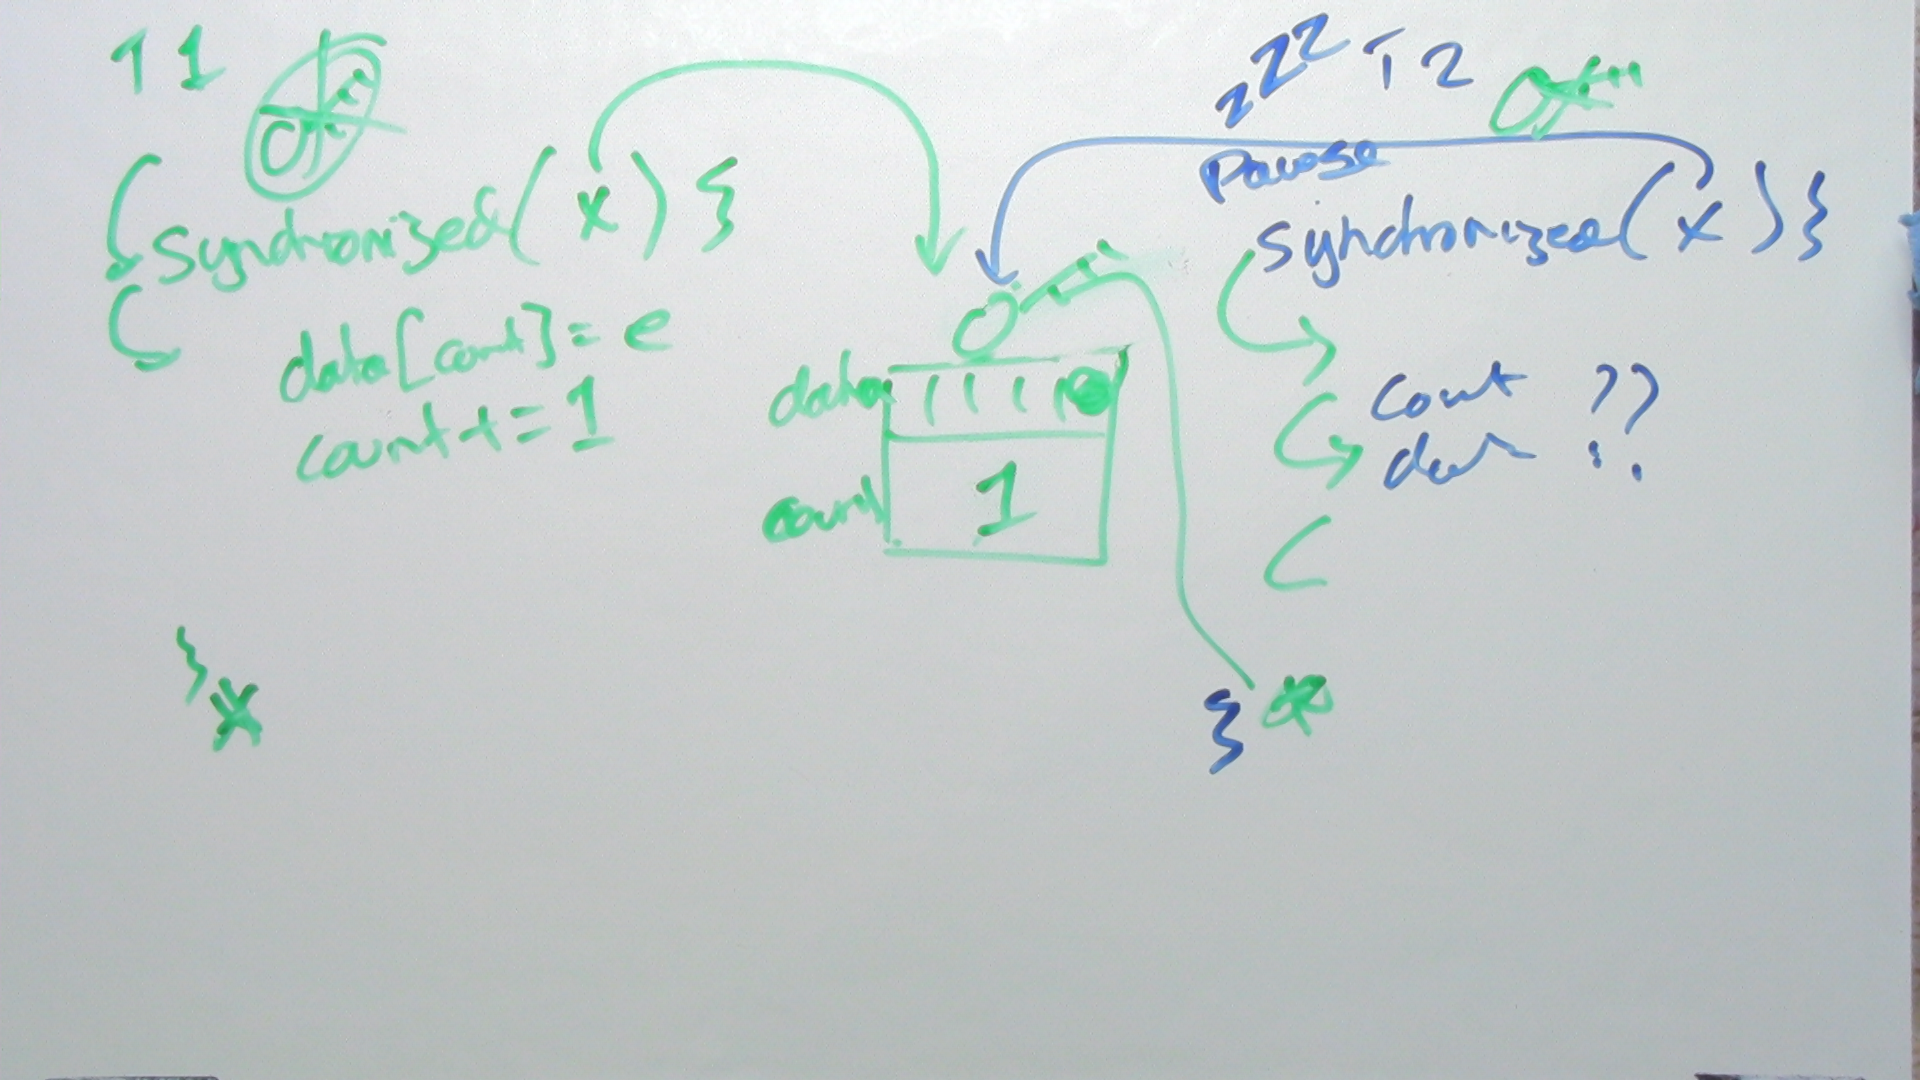 T1
synchronized(x){
data[count]=e
count+=1
}
data
count
1
zzz T2
Pause
synchronized(x){
count ??
data
}